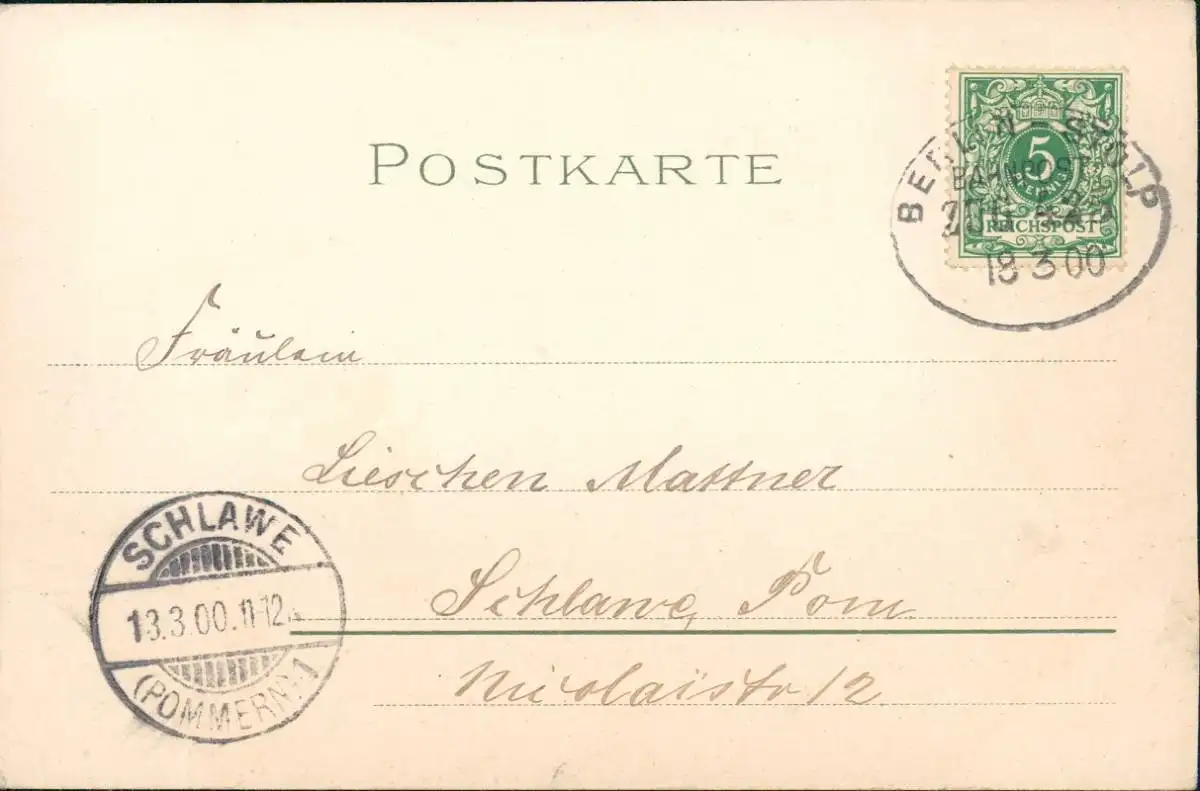 POSTKARTE
BERLIN-STOLP
BAHNPOST
ZUG
18 3 00
5
PFENNIG
REICHSPOST
Fräulein
Lieschen Mattner
Schlawe, Pom.
Nicolaistr 12.
SCHLAWE
13.3.00.11-12
(POMMERN) 1